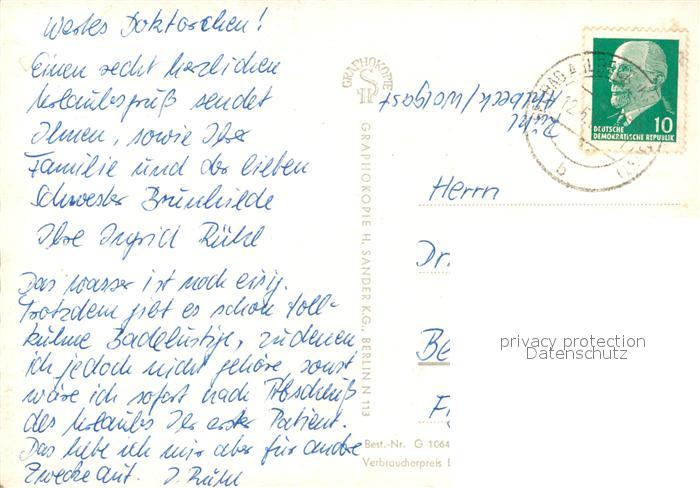 Wertes Doktorchen!
Einen recht herzlichen
Urlaubsgruß sendet
Ihnen, sowie Ihrer
Familie und der lieben
Schwester Brunhilde
Ihre Ingrid Rühl
Das Wasser ist noch eisig.
Trotzdem gibt es schon toll-
kühne Badelustige, zu denen
ich jedoch nicht gehöre, sonst
wäre ich sofort nach Abschluß
des Urlaubs Ihr erster Patient.
Das hebe ich mir aber für andre
Zwecke auf. I. Rühl
GRAPHOKOPIE
GRAPHOKOPIE H. SANDER K.G., BERLIN N 113
Rühl
Ahlbeck/Wolgast
DEUTSCHE
DEMOKRATISCHE REPUBLIK
10
b
Herrn
Dr.
Be
F
privacy protection
Datenschutz
Best.-Nr. G 1064
Verbraucherpreis